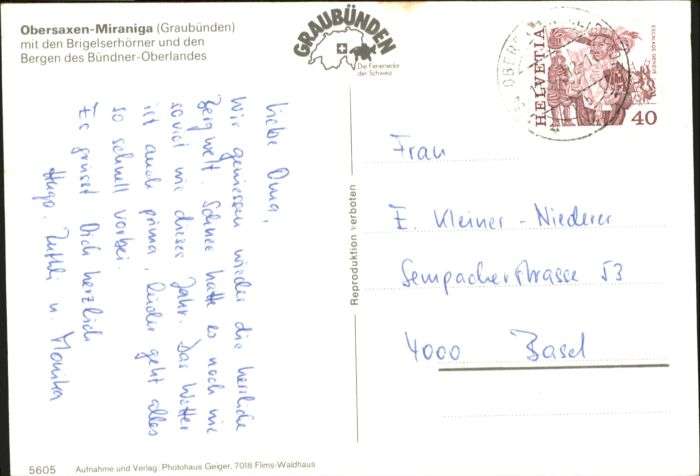 Obersaxen-Miraniga (Graubünden)
mit den Brigelserhörner und den
Bergen des Bündner-Oberlandes
GRAUBÜNDEN
Die Ferienecke
der Schweiz
HELVETIA
40
Liebe Oma,
Wir geniessen wieder die herrliche
Bergwelt. Schnee hatte es noch nie
soviel wie dieses Jahr. Das Wetter
ist auch prima, leider geht alles
so schnell vorbei.
Es grüsst Dich herzlich
Hugo, u. Monika
Reproduktion verboten
Frau
E. Kleiner-Niederer
Sempacherstrasse 53
4000 Basel
5605 Aufnahme und Verlag: Photohaus Geiger, 7018 Flims-Waldhaus